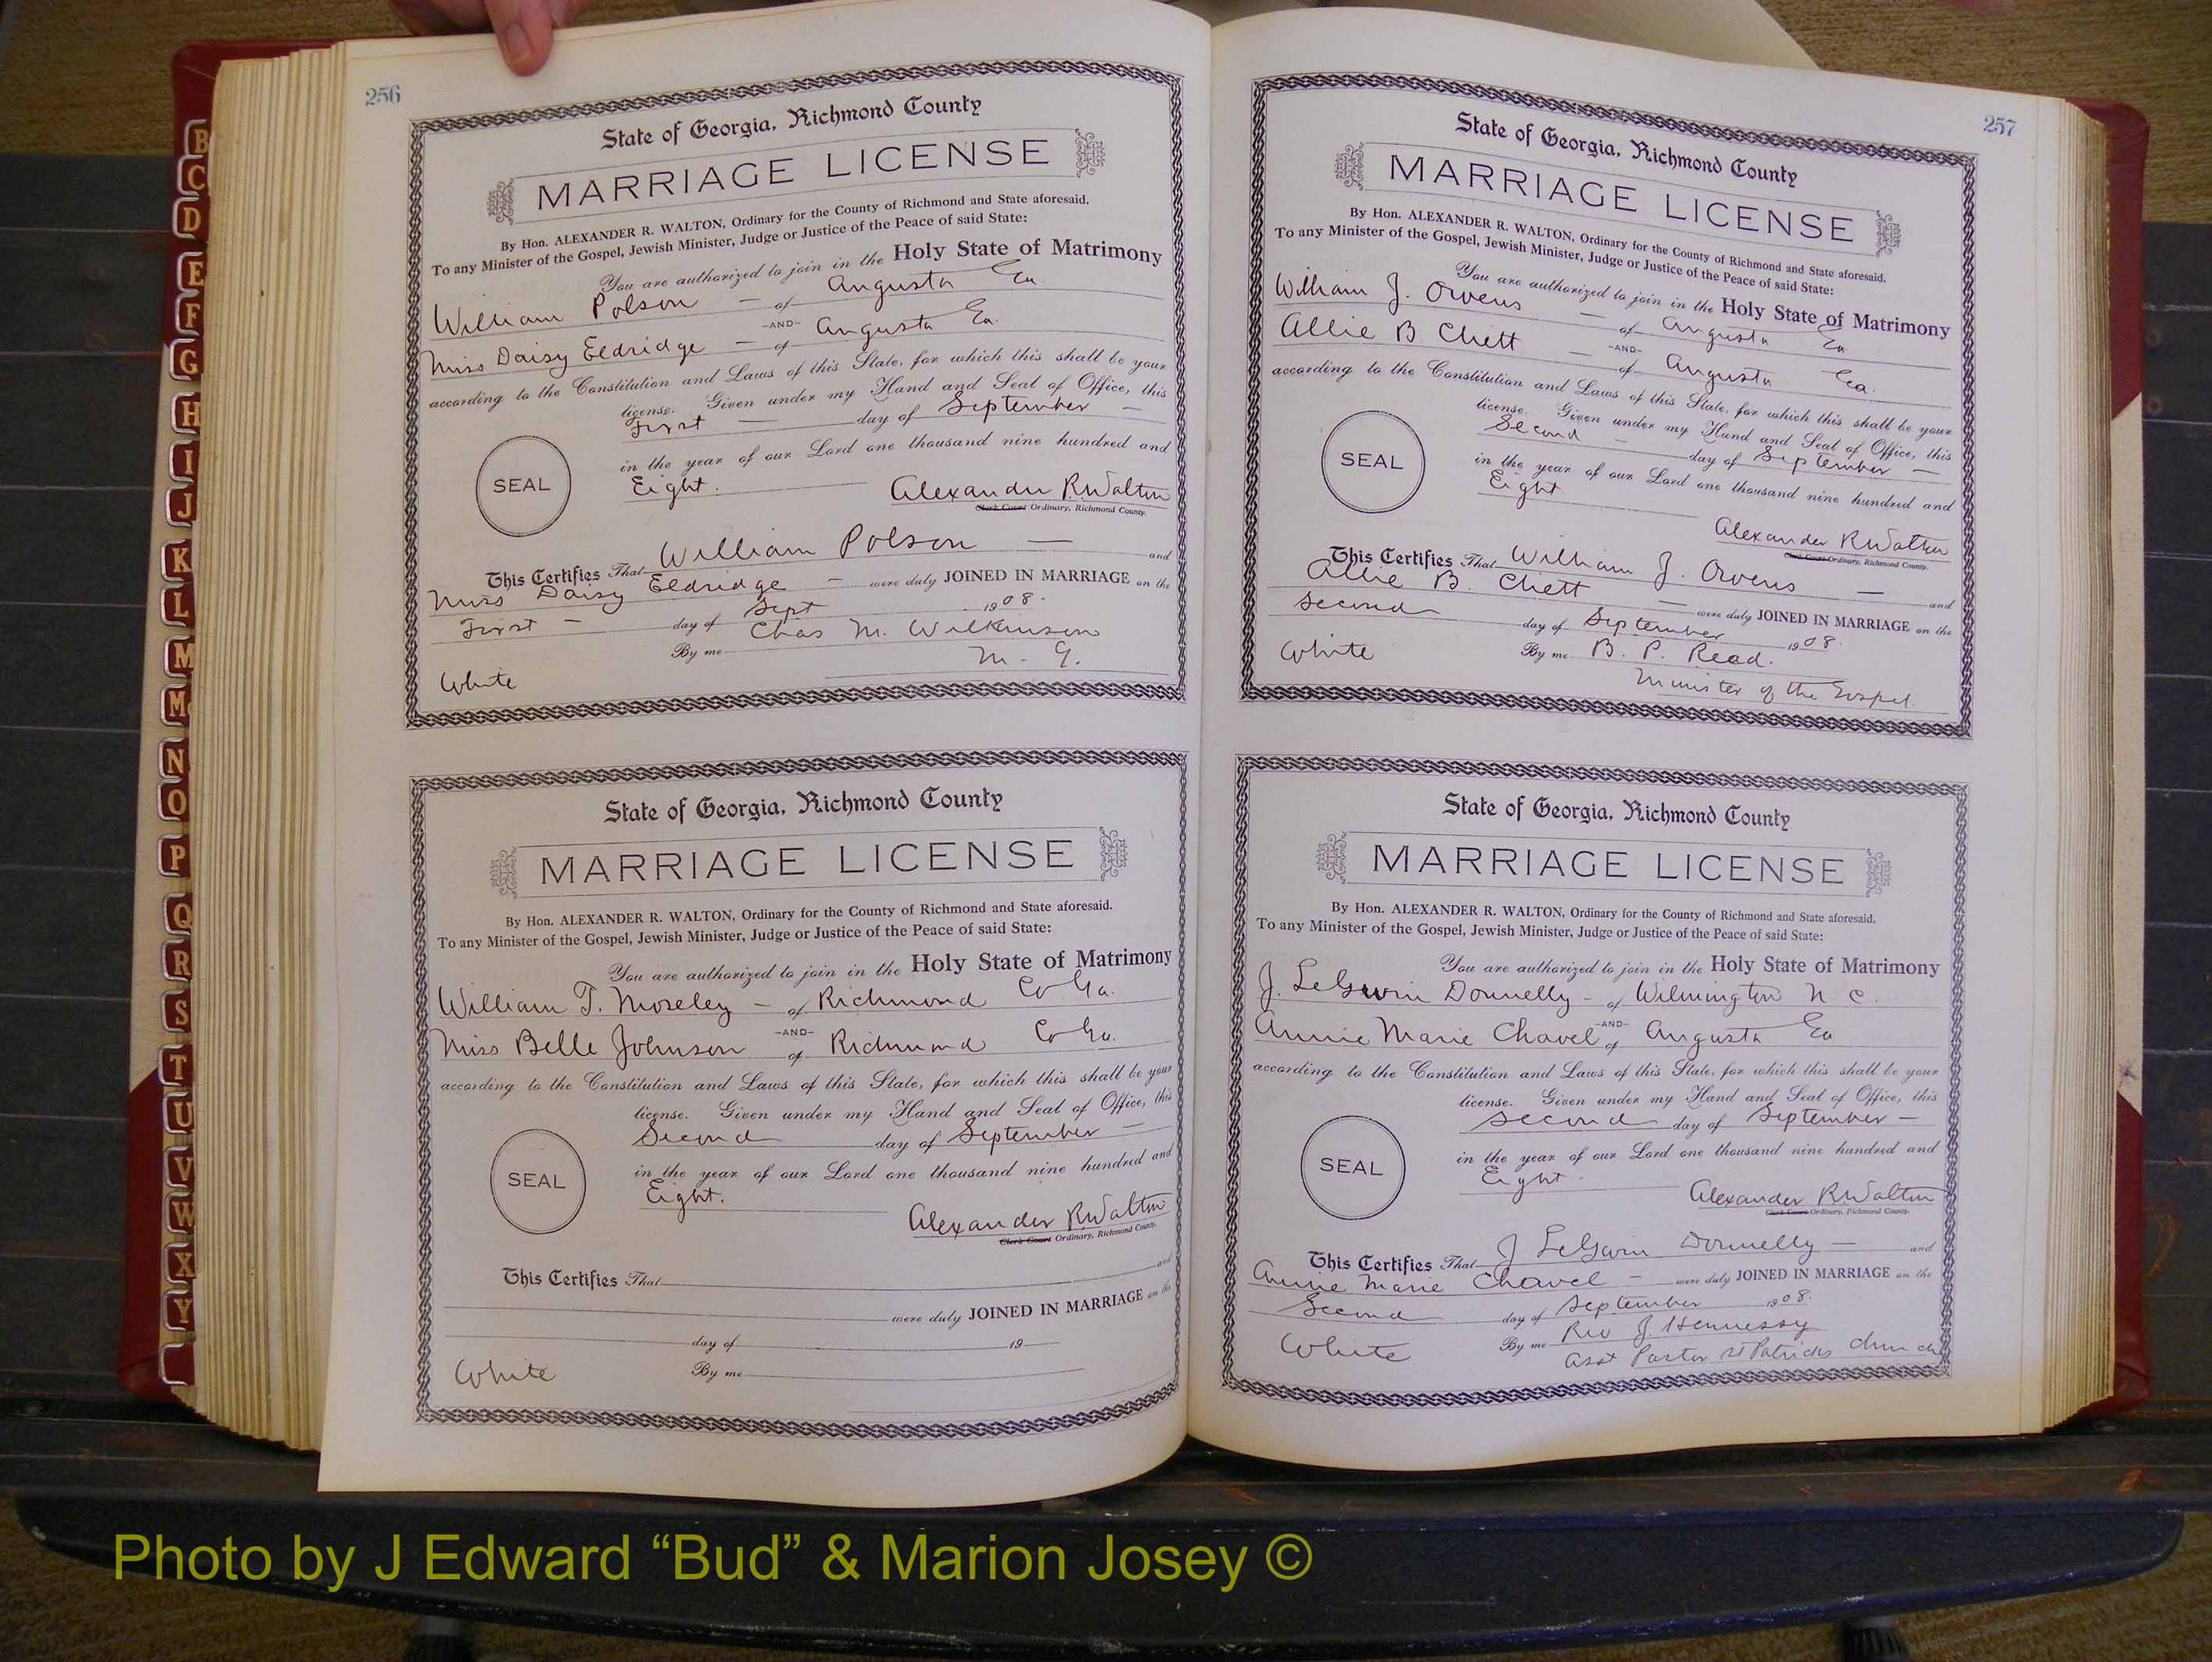 256
State of Georgia, Richmond County
MARRIAGE LICENSE
By Hon. ALEXANDER R. WALTON, Ordinary for the County of Richmond and State aforesaid.
To any Minister of the Gospel, Jewish Minister, Judge or Justice of the Peace of said State:
You are authorized to join in the Holy State of Matrimony
William Polson — of Augusta Ga
-AND-
Miss Daisy Eldridge — of Augusta Ga.
according to the Constitution and Laws of this State, for which this shall be your
license. Given under my Hand and Seal of Office, this
First — day of September —
in the year of our Lord one thousand nine hundred and
SEAL
Eight.
Alexander R Walton
Clerk Court Ordinary, Richmond County.
This Certifies That William Polson — and
Miss Daisy Eldridge — were duly JOINED IN MARRIAGE on the
First — day of Sept 1908.
By me Chas M. Wilkinson
M. G.
White
State of Georgia, Richmond County
MARRIAGE LICENSE
By Hon. ALEXANDER R. WALTON, Ordinary for the County of Richmond and State aforesaid.
To any Minister of the Gospel, Jewish Minister, Judge or Justice of the Peace of said State:
You are authorized to join in the Holy State of Matrimony
William T. Moseley — of Richmond Co Ga.
-AND-
Miss Belle Johnson of Richmond Co Ga.
according to the Constitution and Laws of this State, for which this shall be your
license. Given under my Hand and Seal of Office, this
Second day of September —
in the year of our Lord one thousand nine hundred and
SEAL
Eight.
Alexander R Walton
Clerk Court Ordinary, Richmond County.
This Certifies That and
were duly JOINED IN MARRIAGE on the
day of 19
By me
White
257
State of Georgia, Richmond County
MARRIAGE LICENSE
By Hon. ALEXANDER R. WALTON, Ordinary for the County of Richmond and State aforesaid.
To any Minister of the Gospel, Jewish Minister, Judge or Justice of the Peace of said State:
You are authorized to join in the Holy State of Matrimony
William J. Owens — of Augusta Ga
-AND-
Allie B Chett — of Augusta Ga.
according to the Constitution and Laws of this State, for which this shall be your
license. Given under my Hand and Seal of Office, this
Second — day of September —
in the year of our Lord one thousand nine hundred and
SEAL
Eight
Alexander R Walton
Clerk Court Ordinary, Richmond County.
This Certifies That William J. Owens — and
Allie B. Chett — were duly JOINED IN MARRIAGE on the
Second day of September 1908.
By me B. P. Read.
Minister of the Gospel.
White
State of Georgia, Richmond County
MARRIAGE LICENSE
By Hon. ALEXANDER R. WALTON, Ordinary for the County of Richmond and State aforesaid.
To any Minister of the Gospel, Jewish Minister, Judge or Justice of the Peace of said State:
You are authorized to join in the Holy State of Matrimony
J. LeGwin Donnelly — of Wilmington N. C.
-AND-
Annie Marie Chavel of Augusta Ga
according to the Constitution and Laws of this State, for which this shall be your
license. Given under my Hand and Seal of Office, this
Second day of September —
in the year of our Lord one thousand nine hundred and
SEAL
Eight.
Alexander R Walton
Clerk Court Ordinary, Richmond County.
This Certifies That J LeGwin Donnelly — and
Annie Marie Chavel — were duly JOINED IN MARRIAGE on the
Second day of September 1908.
By me Rev J. Hennessy
Asst Pastor St Patricks Church
White
B
C
D
E
F
G
H
I
J
K
L
M
M
N
O
P
Q
R
S
T
U
V
W
X
Y
Photo by J Edward “Bud” & Marion Josey ©